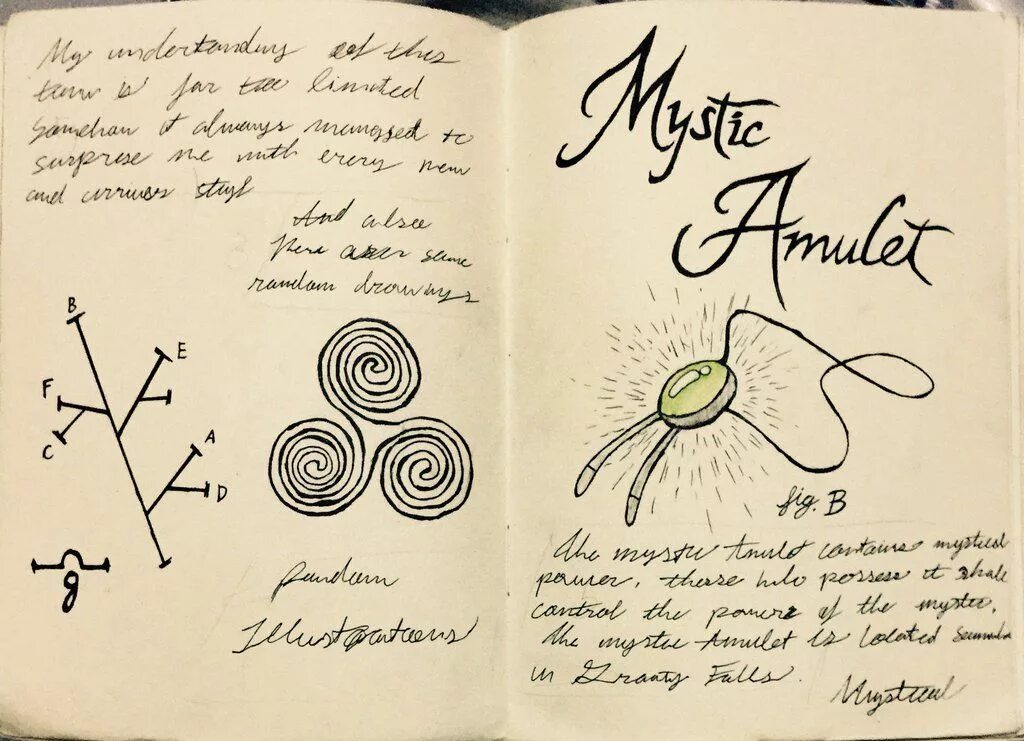 My understanding of this
town is far too limited
Somehow it always managed to
surprise me with every new
and curious stuff
And also
here are some
random drawings
B
E
F
C
A
D
g
random
Illustrations
Mystic
Amulet
fig. B
The mystic Amulet contains mystical
power, those who possess it shall
control the powers of the mystic.
The mystic Amulet is located
in Gravity Falls.
Mystical